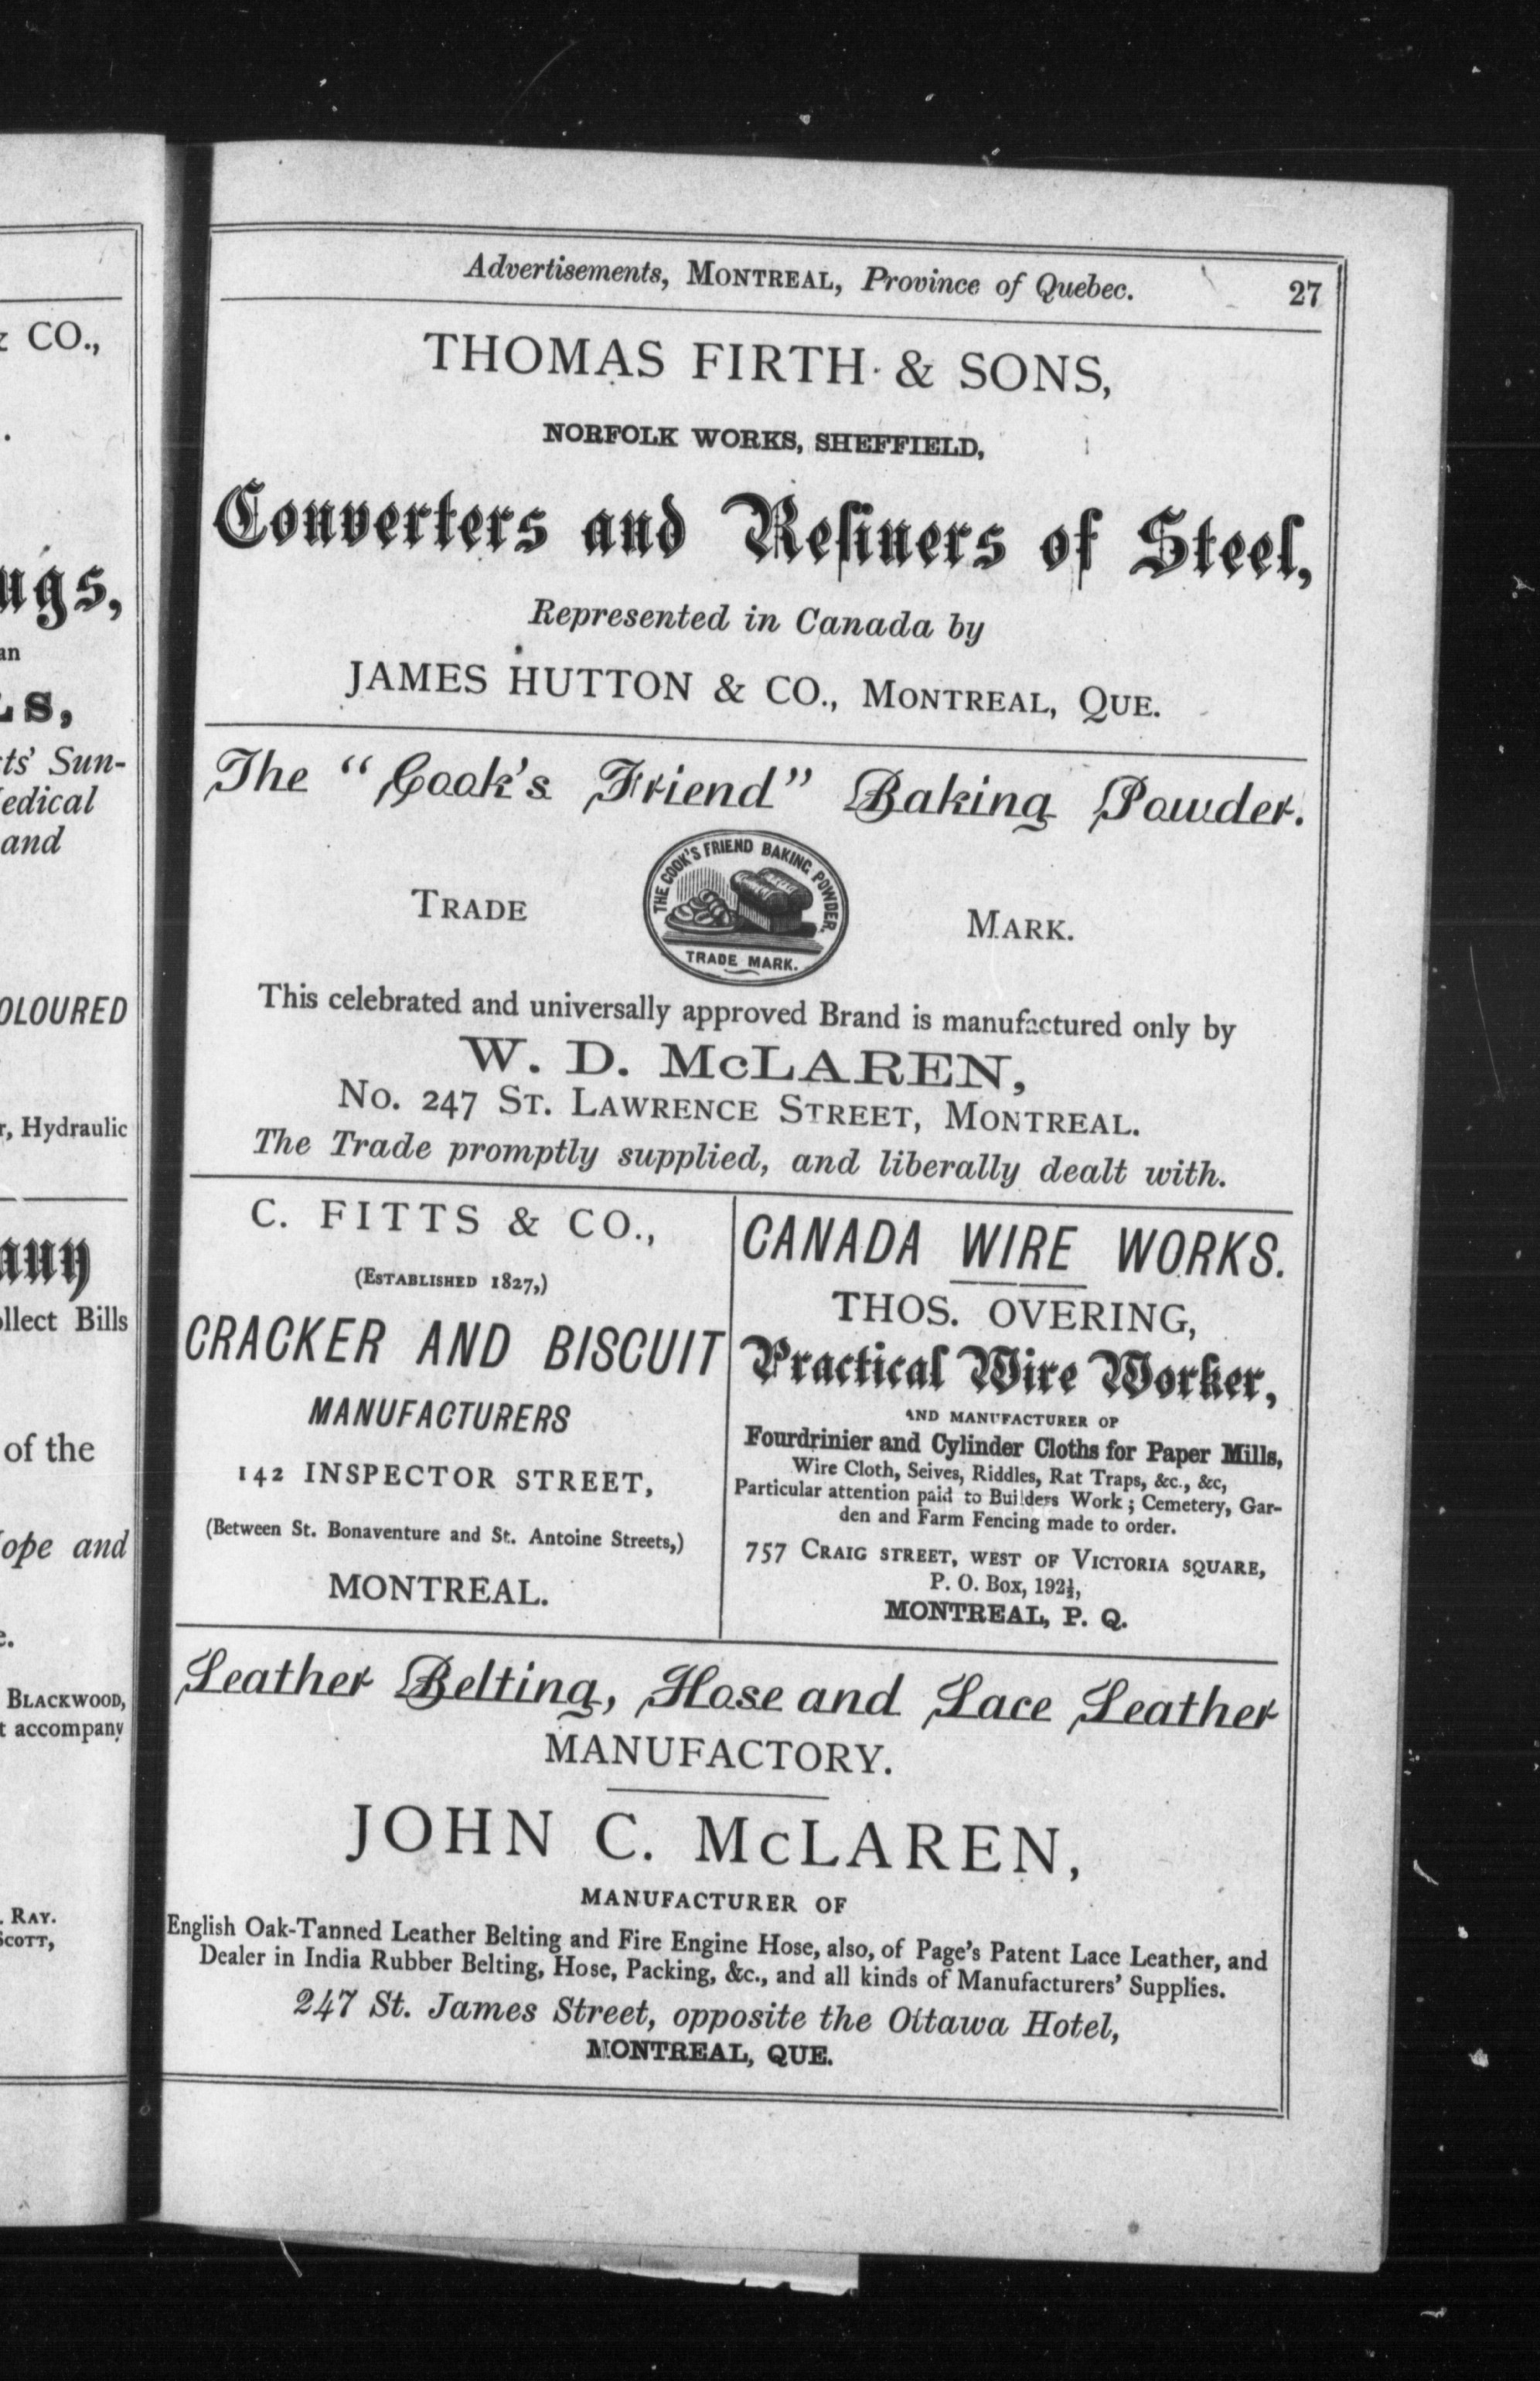 & CO.,
ugs,
an
LS,
ts' Sun-
edical
and
OLOURED
r, Hydraulic
any
ollect Bills
of the
ope and
e.
BLACKWOOD,
t accompany
. RAY.
SCOTT,
Advertisements, MONTREAL, Province of Quebec. 27
THOMAS FIRTH & SONS,
NORFOLK WORKS, SHEFFIELD,
Converters and Refiners of Steel,
Represented in Canada by
JAMES HUTTON & CO., MONTREAL, QUE.
The "Cook's Friend" Baking Powder.
TRADE
THE COOK'S FRIEND BAKING POWDER.
TRADE MARK.
MARK.
This celebrated and universally approved Brand is manufactured only by
W. D. McLAREN,
No. 247 ST. LAWRENCE STREET, MONTREAL.
The Trade promptly supplied, and liberally dealt with.
C. FITTS & CO.,
(ESTABLISHED 1827,)
CRACKER AND BISCUIT
MANUFACTURERS
142 INSPECTOR STREET,
(Between St. Bonaventure and St. Antoine Streets,)
MONTREAL.
CANADA WIRE WORKS.
THOS. OVERING,
Practical Wire Worker,
AND MANUFACTURER OF
Fourdrinier and Cylinder Cloths for Paper Mills,
Wire Cloth, Seives, Riddles, Rat Traps, &c., &c,
Particular attention paid to Builders Work; Cemetery, Gar-
den and Farm Fencing made to order.
757 CRAIG STREET, WEST OF VICTORIA SQUARE,
P. O. Box, 192½,
MONTREAL, P. Q.
Leather Belting, Hose and Lace Leather
MANUFACTORY.
JOHN C. McLAREN,
MANUFACTURER OF
English Oak-Tanned Leather Belting and Fire Engine Hose, also, of Page's Patent Lace Leather, and
Dealer in India Rubber Belting, Hose, Packing, &c., and all kinds of Manufacturers' Supplies.
247 St. James Street, opposite the Ottawa Hotel,
MONTREAL, QUE.